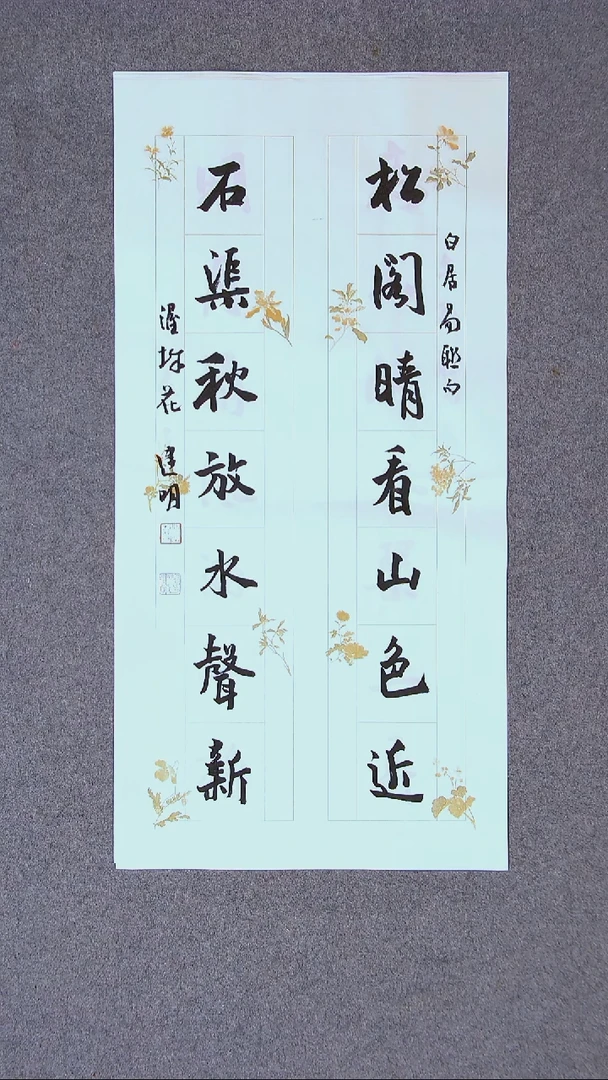 白居易聯句
松閣晴看山色近
石渠秋放水聲新
建明